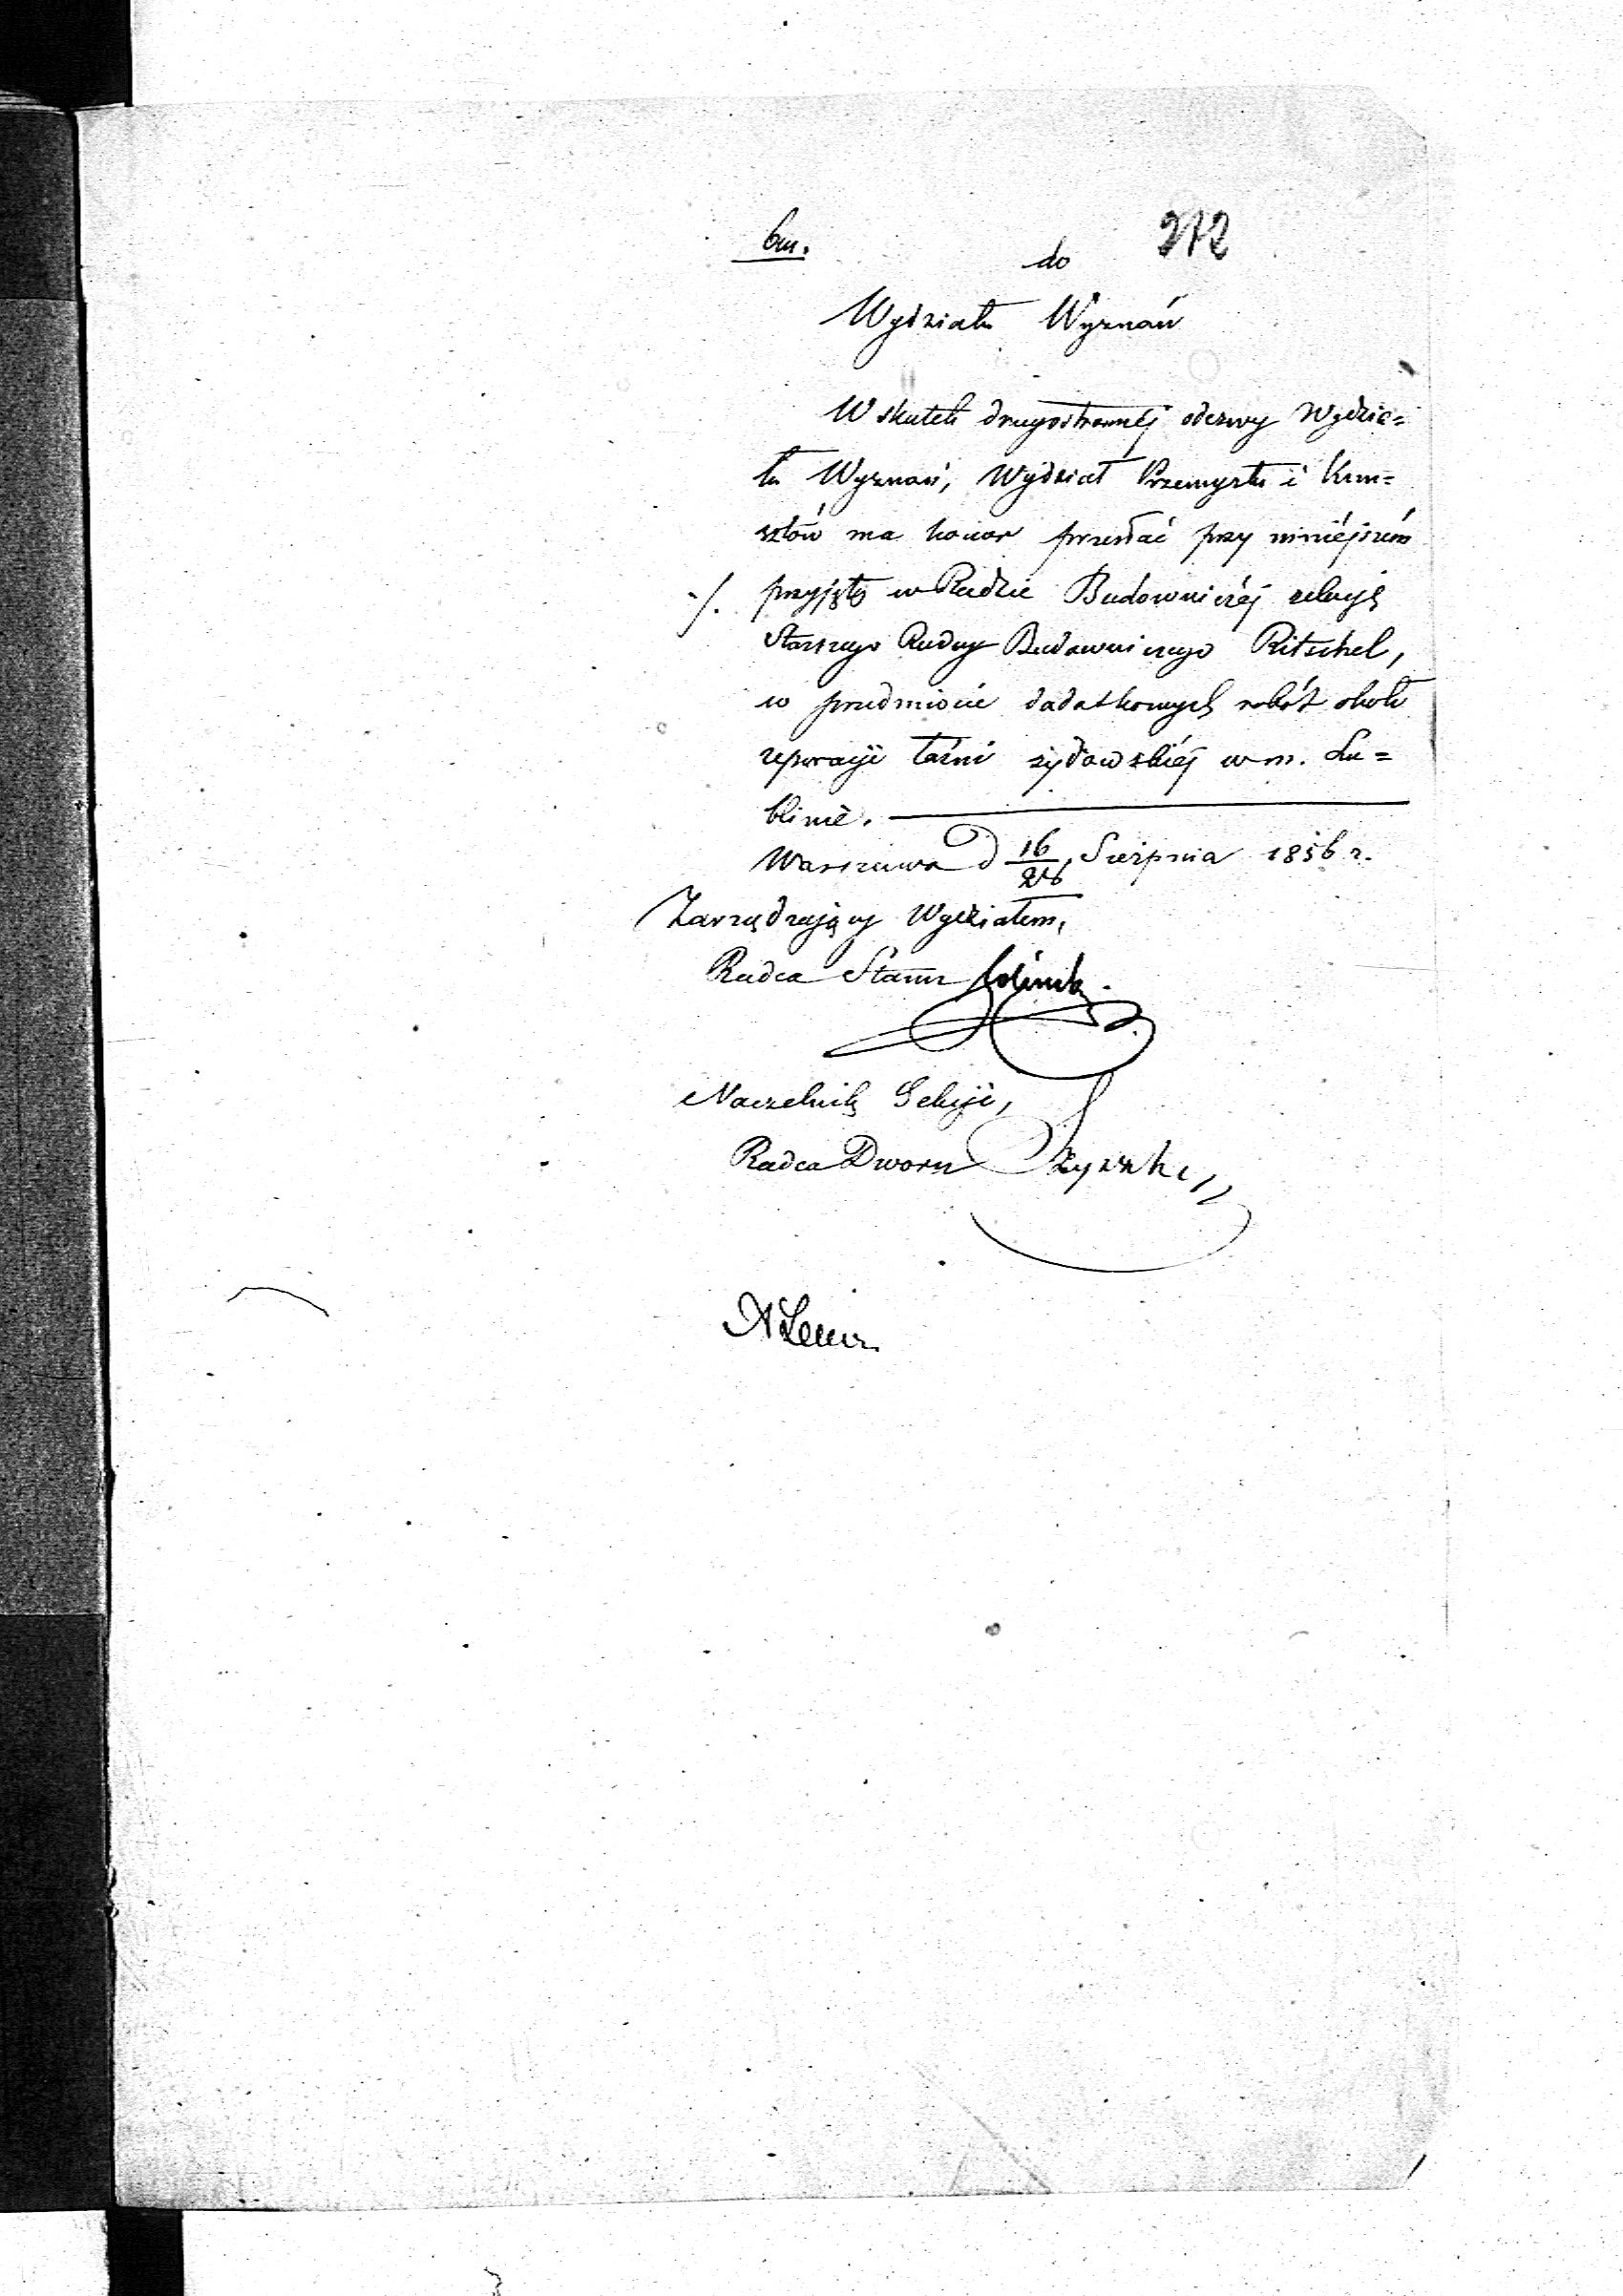 272
do
Wydziału Wyznań
W skutek drugostronnéj odezwy Wydzia=
łu Wyznań, Wydział Przemysłu i Kun=
sztów ma honor przesłać przy niniéjszém
./. przyjętą w Radzie Budowniczéj relacyę
Starszego Radcy Budowniczego Ritschel,
w przedmiocie dodatkowych robót około
reparacyi łaźni żydowskiéj w m. Lu=
blinie.
Warszawa d 16/28 Sierpnia 1856 r.
Zarządzający Wydziałem,
Radca Stanu
Naczelnik Sekcyi,
Radca Dworu